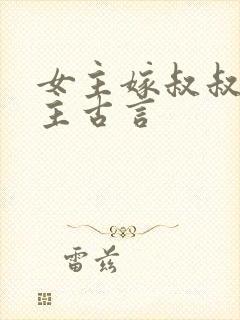 女主嫁叔叔
主古言
雷兹